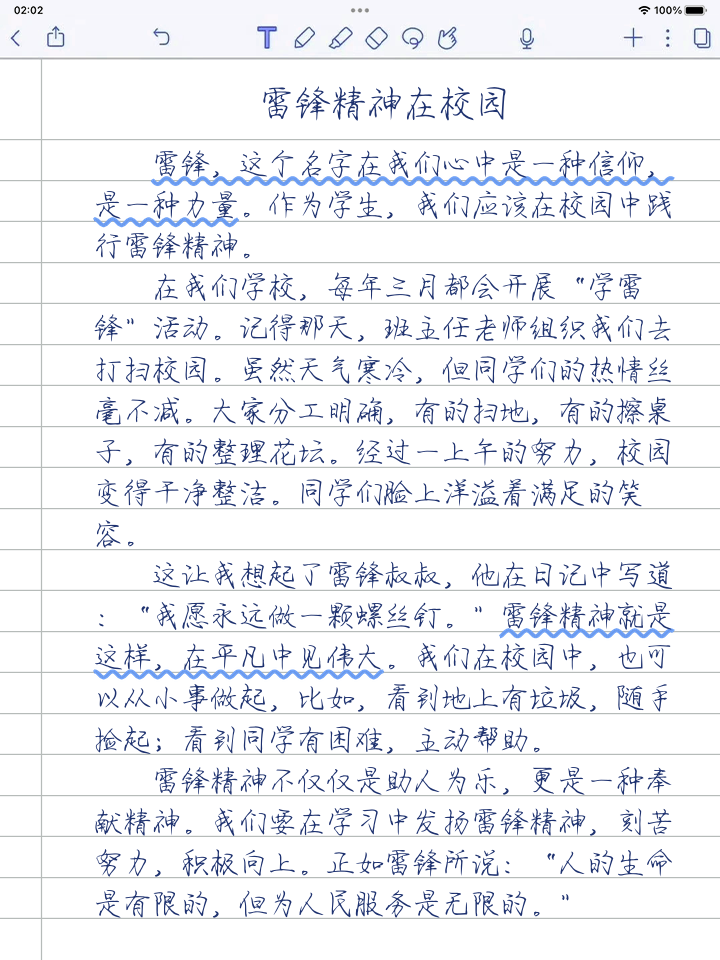 02:02
100%
雷锋精神在校园
雷锋，这个名字在我们心中是一种信仰，
是一种力量。作为学生，我们应该在校园中践
行雷锋精神。
在我们学校，每年三月都会开展“学雷
锋”活动。记得那天，班主任老师组织我们去
打扫校园。虽然天气寒冷，但同学们的热情丝
毫不减。大家分工明确，有的扫地，有的擦桌
子，有的整理花坛。经过一上午的努力，校园
变得干净整洁。同学们脸上洋溢着满足的笑
容。
这让我想起了雷锋叔叔，他在日记中写道
：“我愿永远做一颗螺丝钉。”雷锋精神就是
这样，在平凡中见伟大。我们在校园中，也可
以从小事做起，比如，看到地上有垃圾，随手
捡起；看到同学有困难，主动帮助。
雷锋精神不仅仅是助人为乐，更是一种奉
献精神。我们要在学习中发扬雷锋精神，刻苦
努力，积极向上。正如雷锋所说：“人的生命
是有限的，但为人民服务是无限的。”